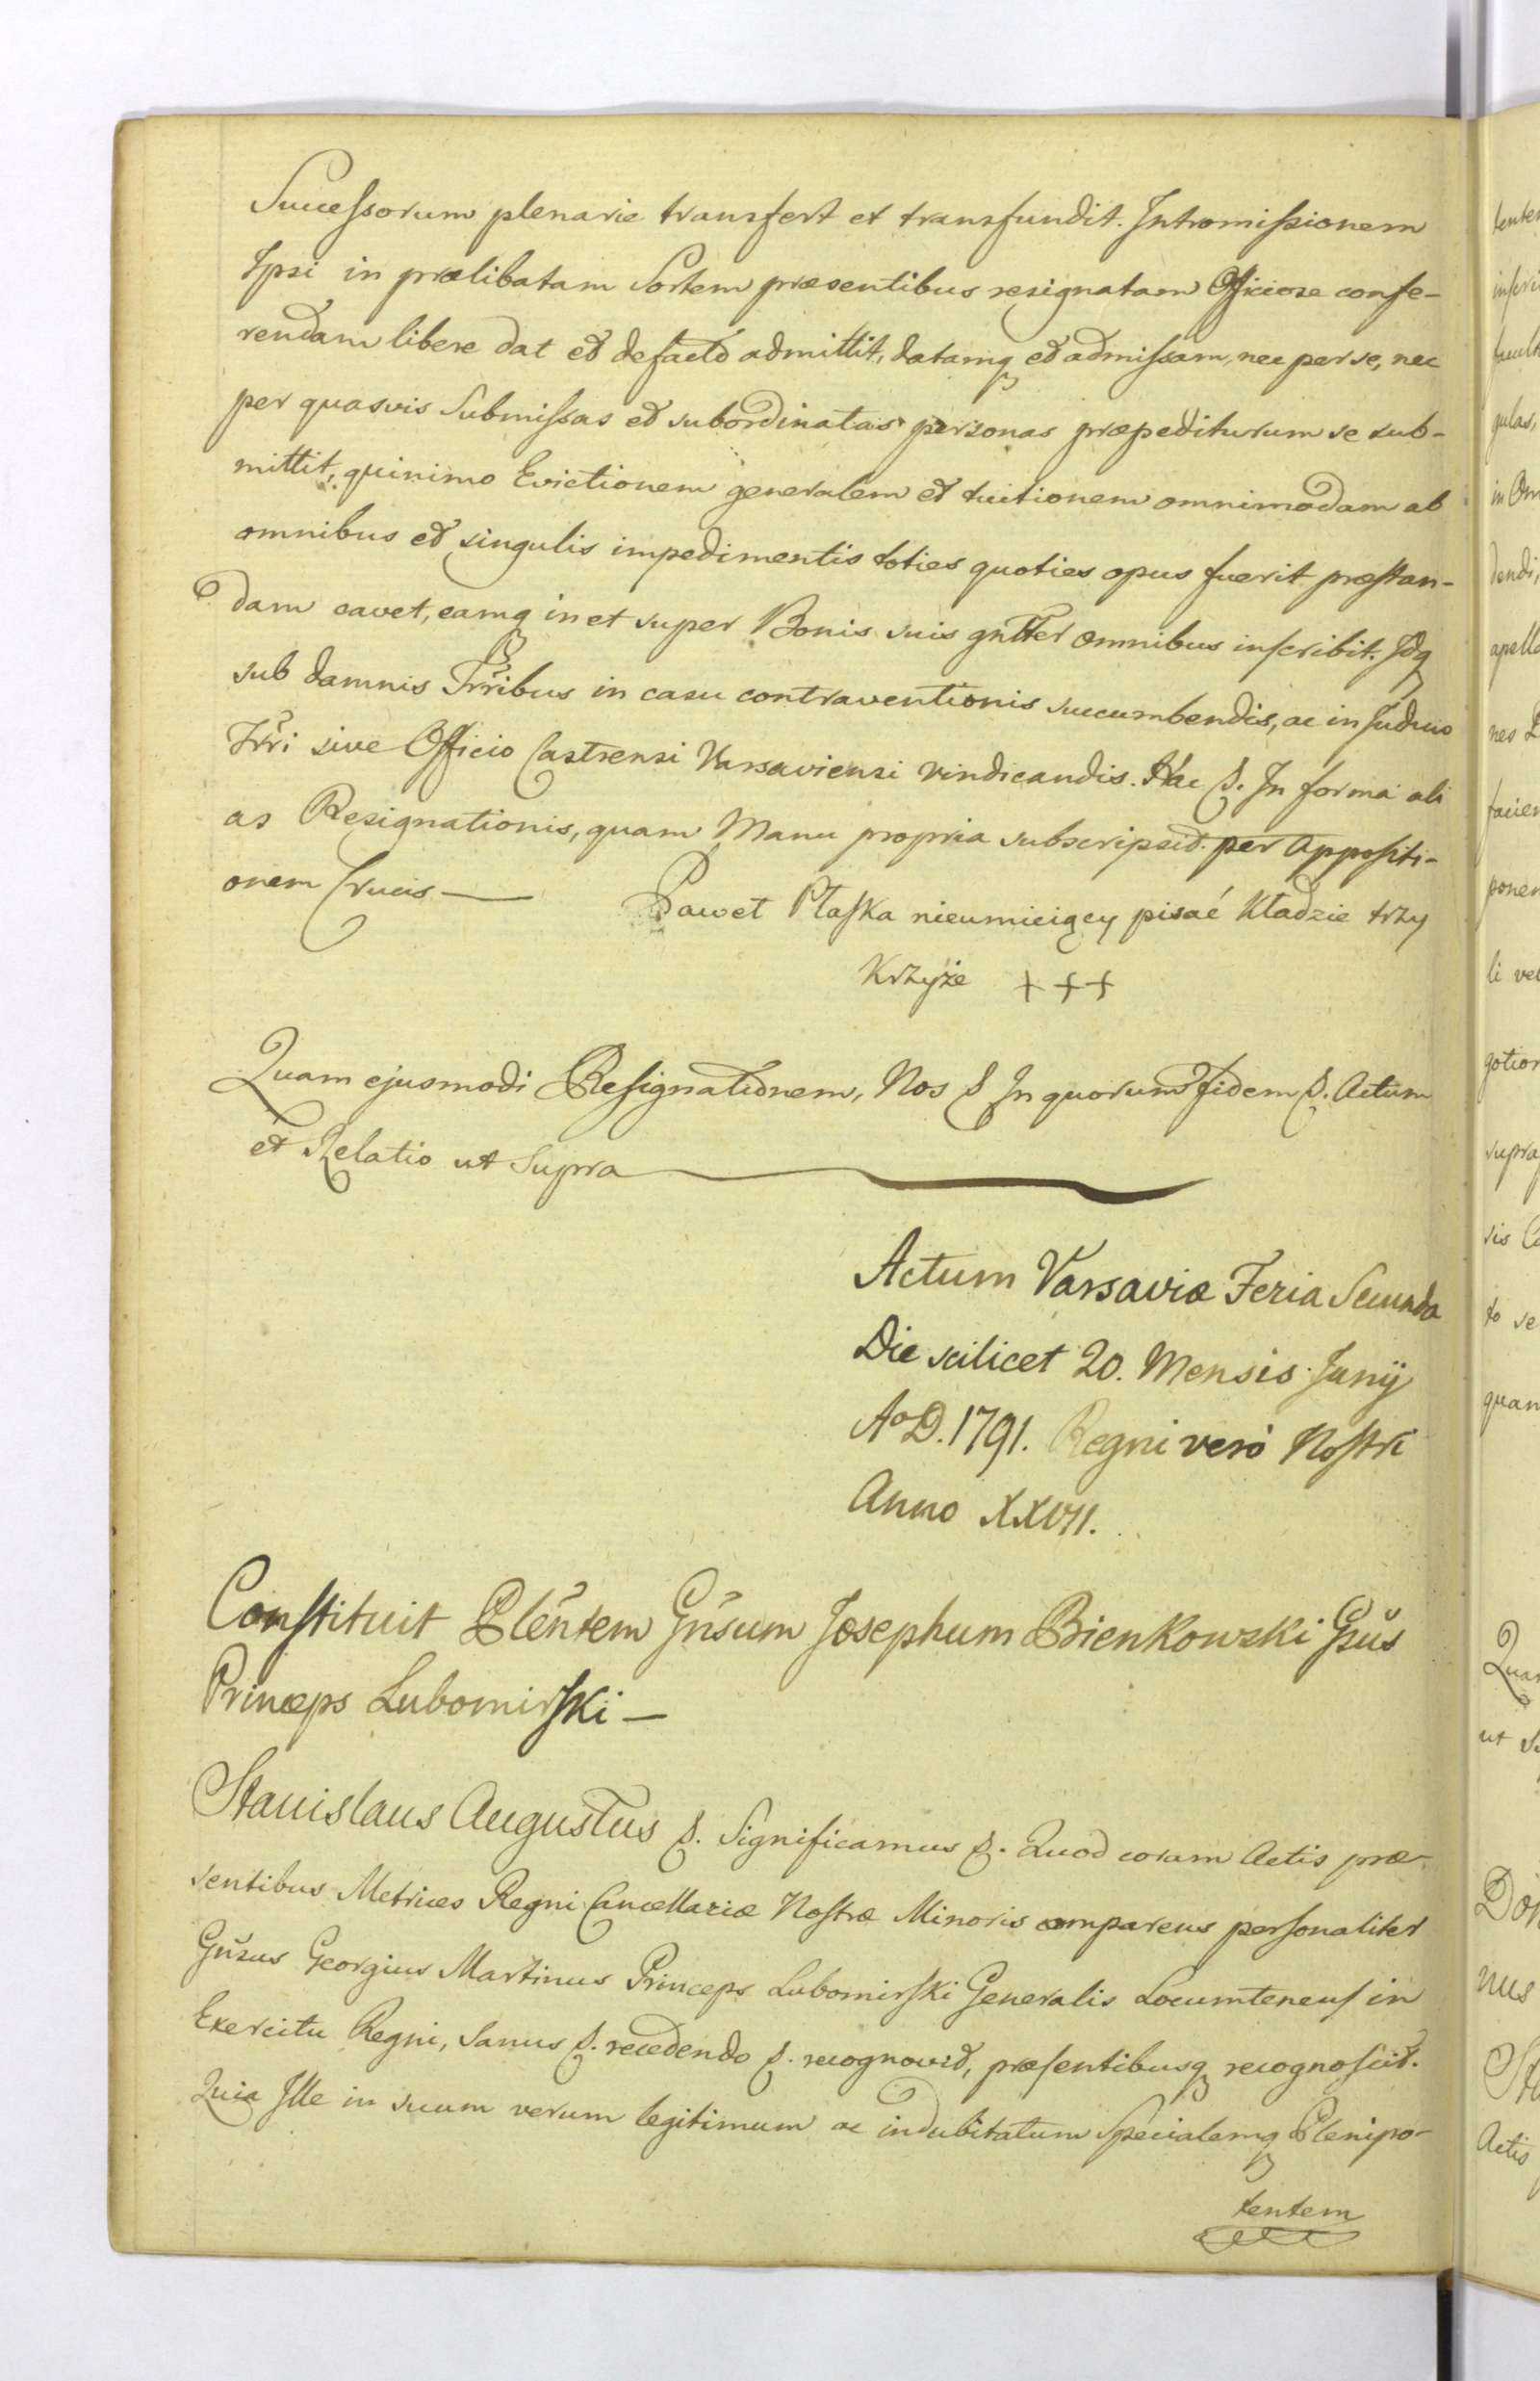 Successorum plenarie transfert et transfundit. Intromissionem
Ipsi in prælibatam Sortem præsentibus resignatam Officiose confe-
rendam libere dat et defacto admittit, datamq et admissam, nec per se, nec
per quasvis Submissas et subordinatas personas præpediturum se sub-
mittit, quinimo Evictionem generalem et tuitionem omnimodam ab
omnibus et singulis impedimentis toties quoties opus fuerit præstan-
dam cavet, eamq in et super Bonis suis gnltter omnibus inscribit. Idq
sub damnis Trribus in casu contraventionis succumbendis, ac in Judicio
Trri sive Officio Castrensi Varsaviensi vindicandis. Hac &. In forma ali
as Resignationis, quam Manu propria subscripsit. per Appositi-
onem Crucis — Paweł Płaska nieumieiący pisać Kładzie trzy
Krzyże +++
Quam ejusmodi Resignationem, Nos & In quorum fidem &. Actum
et Relatio ut Supra
Actum Varsaviæ Feria Secunda
Die scilicet 20. Mensis Junij
Aº D. 1791. Regni verò Nostri
Anno XXVII.
Constituit Plentem Gnsum Josephum Bienkowski Gsus
Princeps Lubomirski —
Stanislaus Augustus &. Significamus &. Quod coram Actis præ-
sentibus Metrices Regni Cancellariæ Nostræ Minoris comparens personaliter
Gnsus Georgius Martinus Princeps Lubomirski Generalis Locumtenens in
Exercitu Regni, Sanus &. recedendo &. recognovit, præsentibusq recognoscit.
Quia Ille in suum verum legitimum ac indubitatum Specialemq Plenipo-
tentem